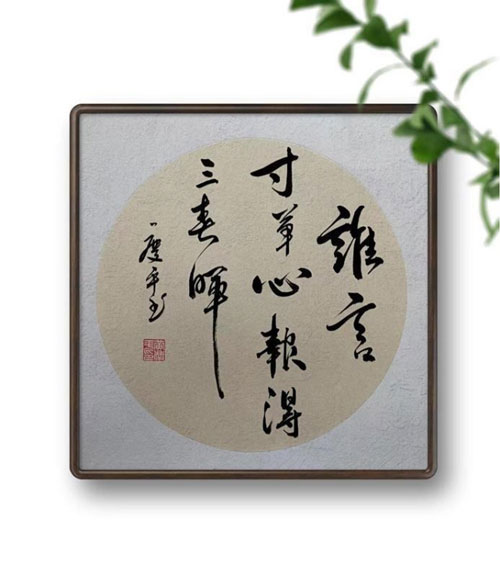 誰言
寸草心報得
三春暉